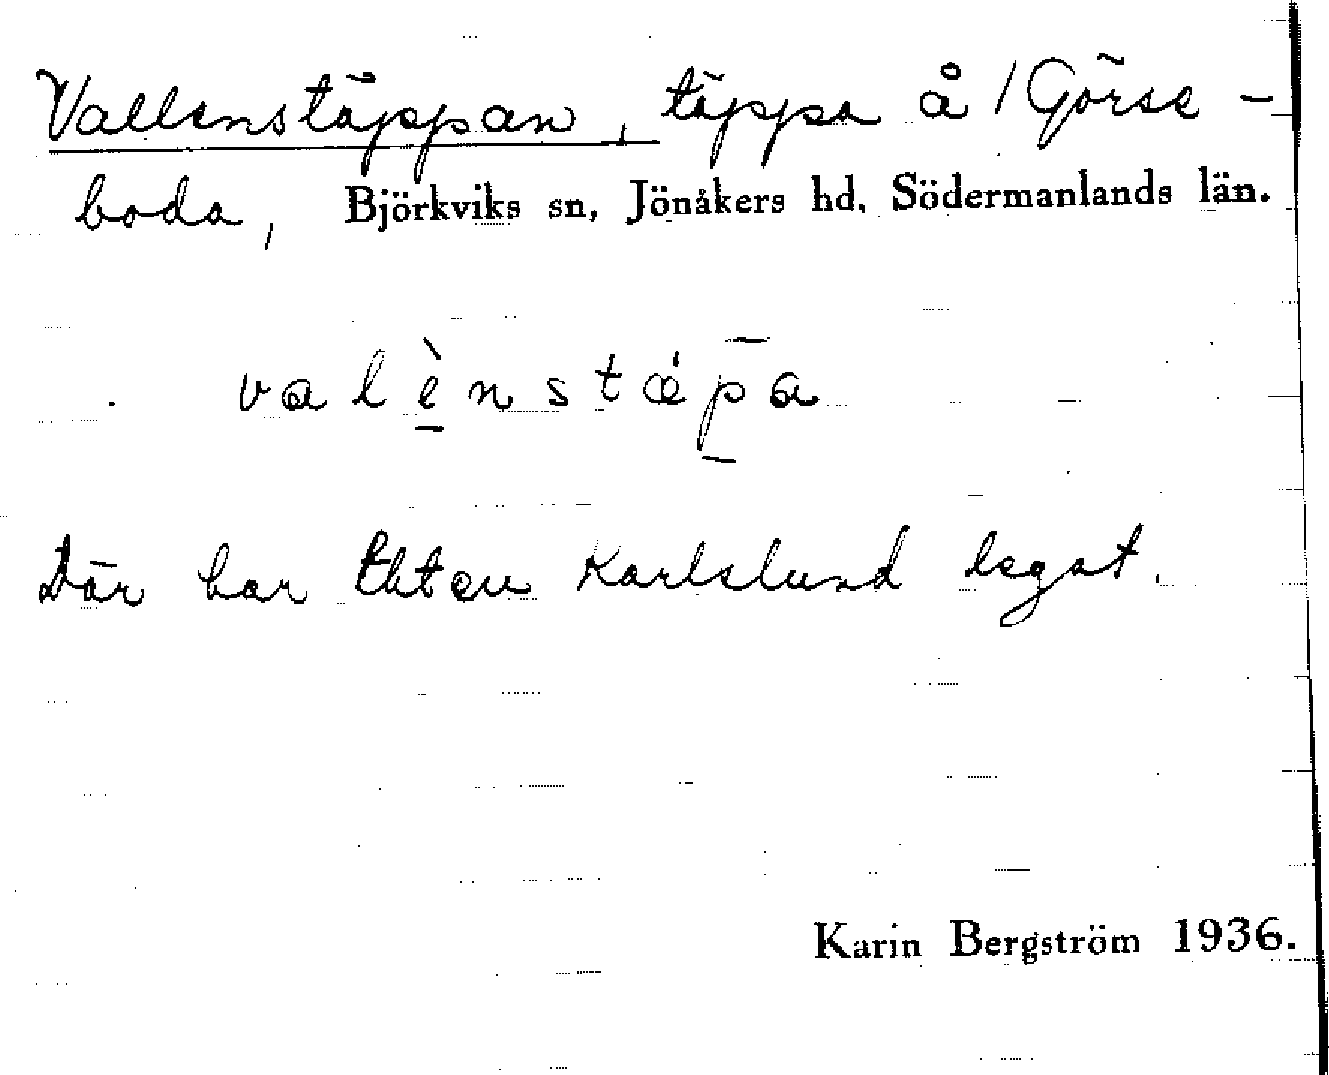 Vallenstäppan, täppa å /Görse-
boda, Björkviks sn, Jönåkers hd, Södermanlands län.
valènstǽpa
Där har Eht en Karlslund legat.
Karin Bergström 1936.